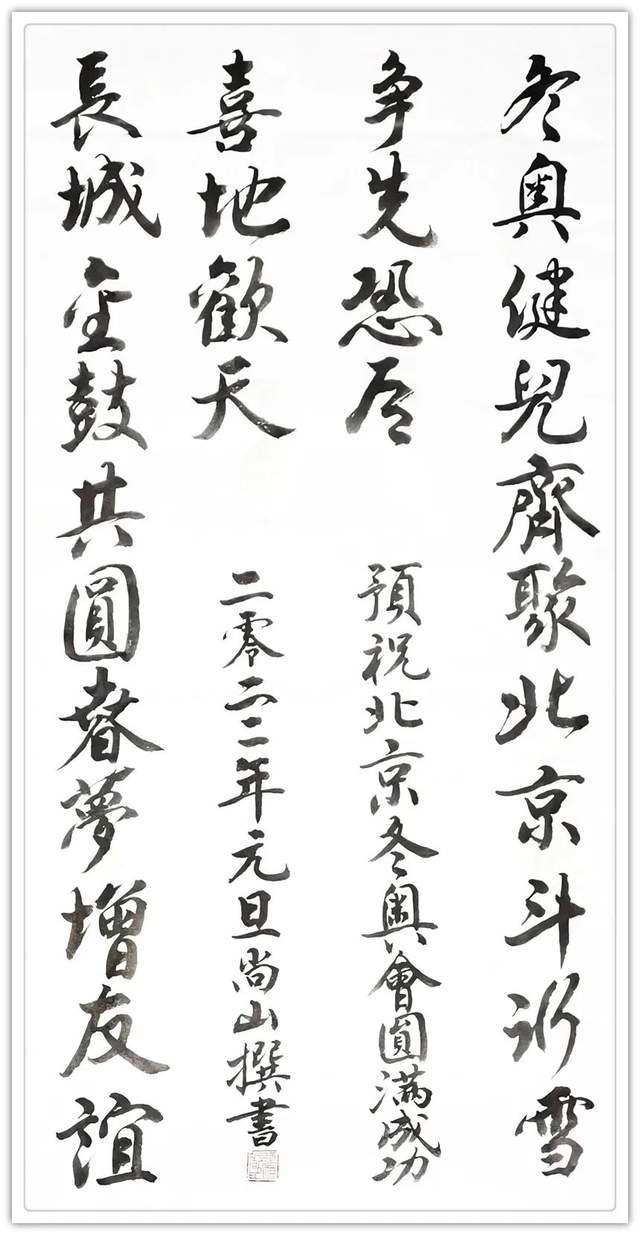 冬奥健兒齊聚北京斗冰雪
争先恐后
長城金鼓共圓春夢增友誼
喜地歡天
預祝北京冬奥會圓满成功
二零二二年元旦尚山撰書